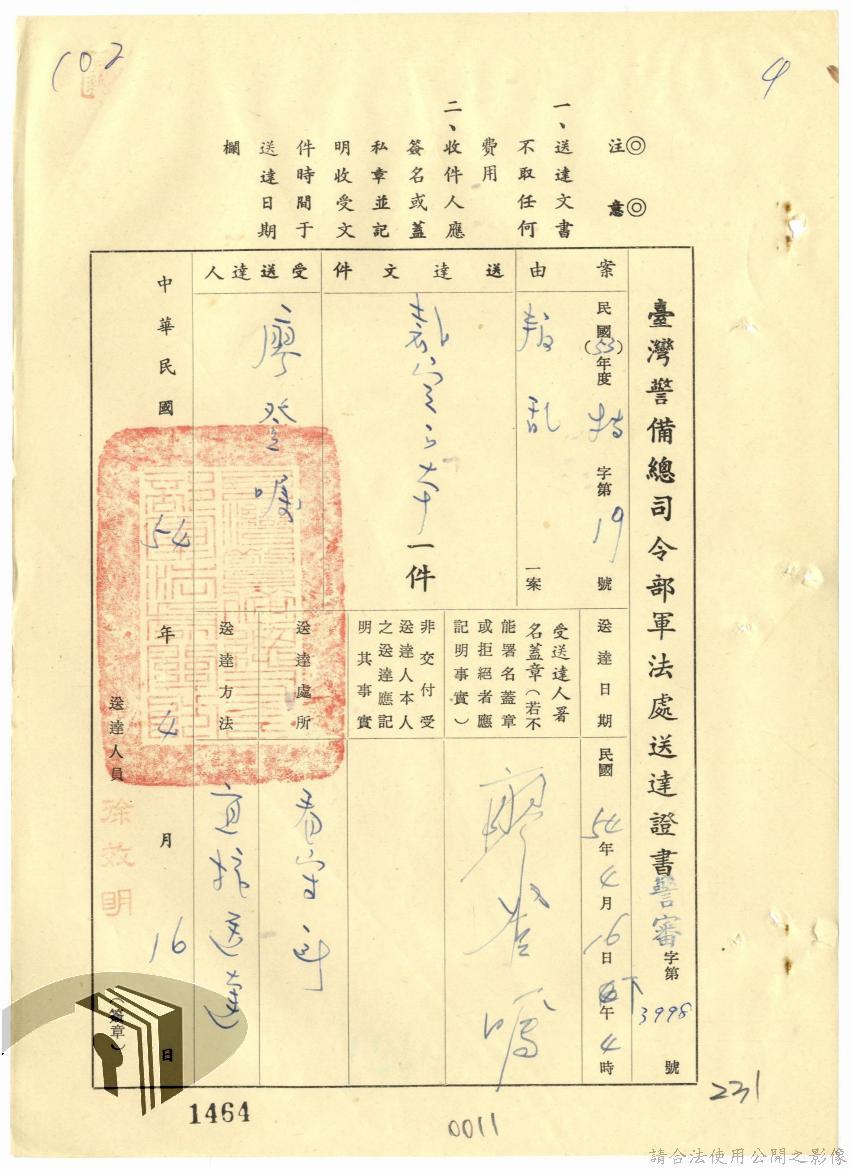 102
4
◎注意◎
一、送達文書
不取任何
費用
二、收件人應
簽名或蓋
私章並記
明收受文
件時間于
送達日期
欄
臺灣警備總司令部軍法處送達證書
警審字第3998號
案由
民國(53)年度特字第19號
叛乱一案
送達文件
裁定正本一件
受送達人
廖登嘱
送達日期
民國54年4月16日下午4時
受送達人署
名蓋章(若不
能署名蓋章
或拒絕者應
記明事實)
廖登嘱
非交付受
送達人本人
之送達應記
明其事實
送達處所
看守所
送達方法
直接送達
中華民國54年4月16日
送達人員 徐效明 (簽章)
1464
0011
231
請合法使用公開之影像